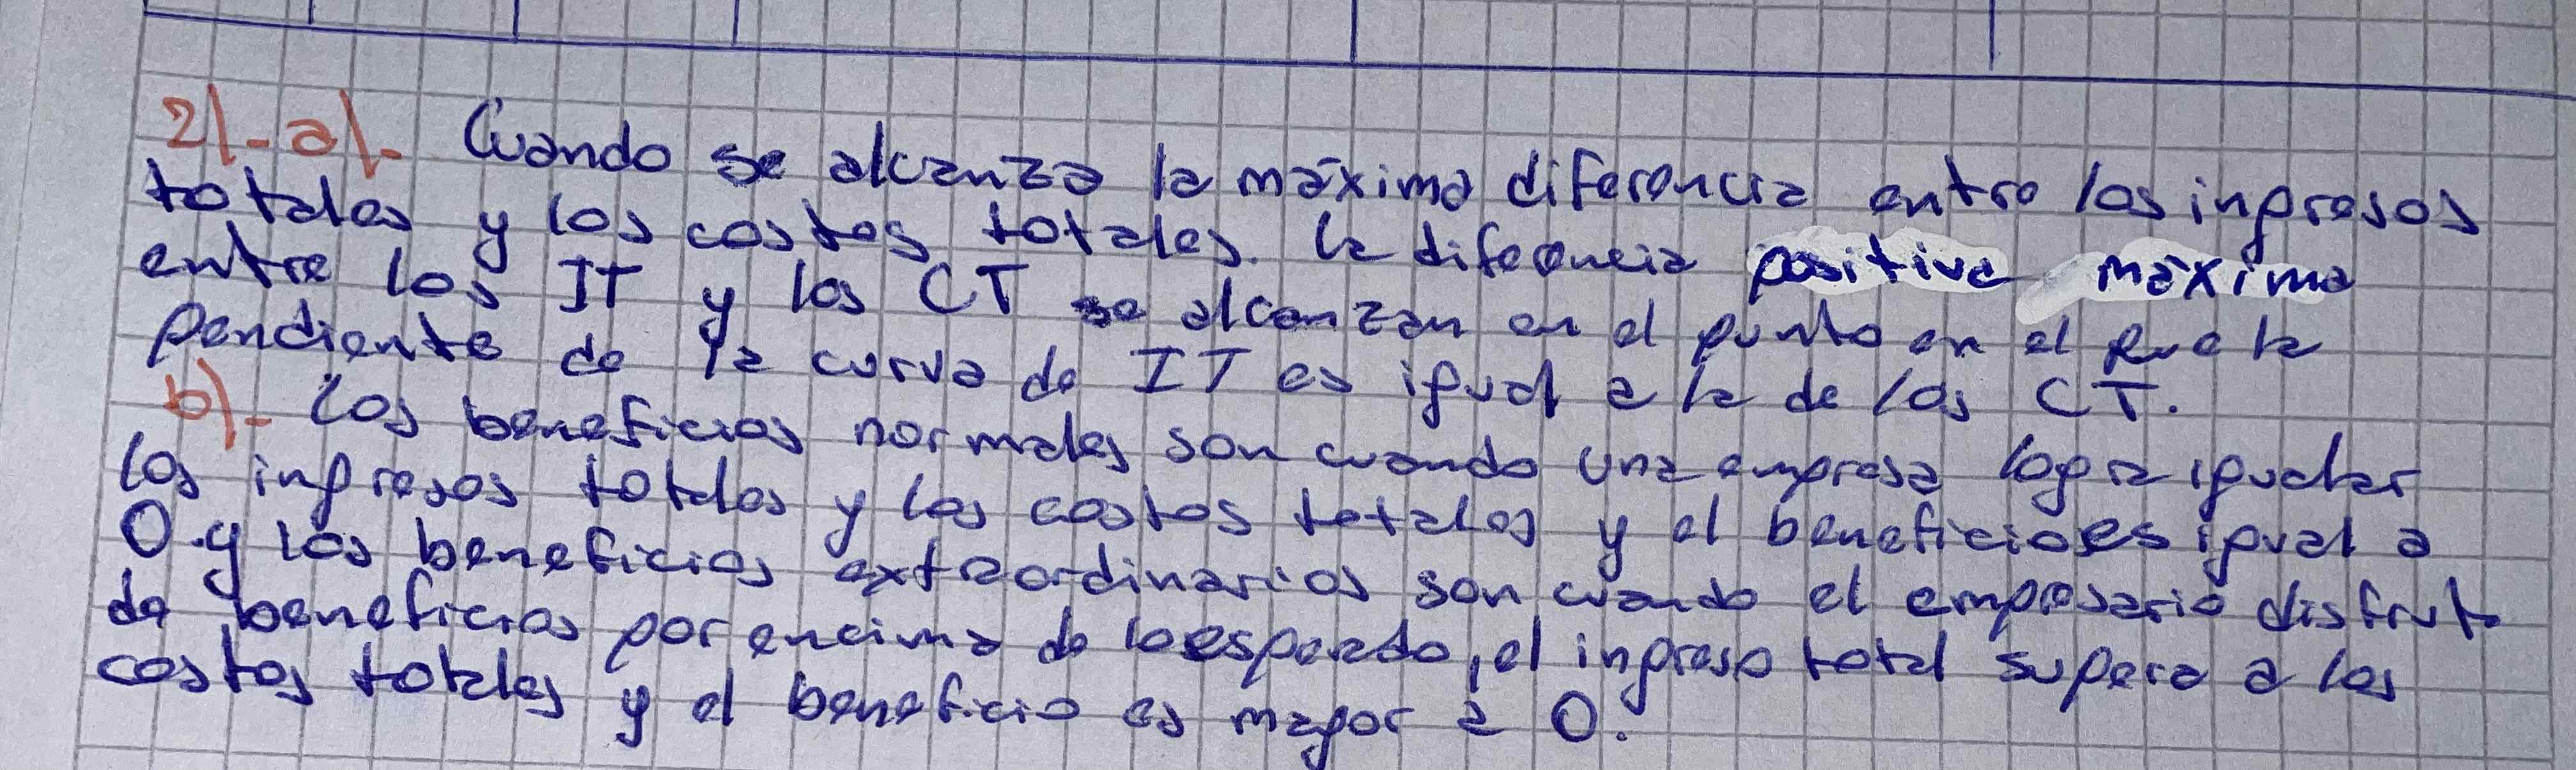 2)-a)- Cuando se alcanza la máxima diferencia entre los ingresos
totales y los costos totales. La difeencia positiva máxima
entre los IT y los CT se alcanzan en el punto en el que la
pendiente de la curva de IT es igual a la de los CT.
b)- Los beneficios normales son cuando una empresa logra igualar
los ingresos totales y los costos totales y el beneficio es igual a
0. y los beneficios extraordinarios son cuando el empresario disfruta
de beneficios por encima de lo esperado, el ingreso total supera a los
costos totales y el beneficio es mayor a 0.